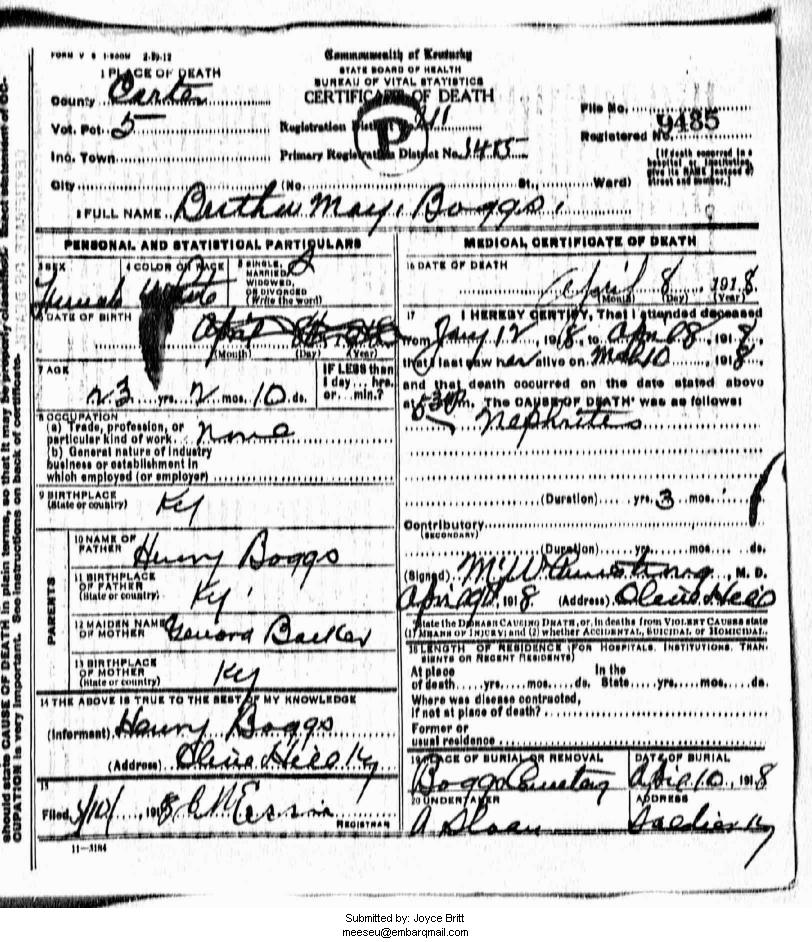 FORM V S 1-500M 2-29-12
Commonwealth of Kentucky
STATE BOARD OF HEALTH
BUREAU OF VITAL STATISTICS
CERTIFICATE OF DEATH
1 PLACE OF DEATH
County Carter
Vot. Pct. 5
Inc. Town
City (No. St., Ward)
Registration District No. 211
Primary Registration District No. 1485
P
File No.
9485
Registered No.
[If death occurred in a hospital or institution, give its NAME instead of street and number.]
2 FULL NAME Bertha May Boggs
PERSONAL AND STATISTICAL PARTICULARS
3 SEX Female
4 COLOR OR RACE White
5 SINGLE, MARRIED, WIDOWED, OR DIVORCED (Write the word) S
6 DATE OF BIRTH April 8
(Month) (Day) (Year)
7 AGE
23 yrs. 2 mos. 10 ds.
IF LESS than 1 day... hrs. or... min.?
8 OCCUPATION
(a) Trade, profession, or particular kind of work none
(b) General nature of industry business or establishment in which employed (or employer)
9 BIRTHPLACE (State or country) Ky
PARENTS
10 NAME OF FATHER Henry Boggs
11 BIRTHPLACE OF FATHER (State or country) Ky
12 MAIDEN NAME OF MOTHER Barker
13 BIRTHPLACE OF MOTHER (State or country) Ky
14 THE ABOVE IS TRUE TO THE BEST OF MY KNOWLEDGE
(Informant) Henry Boggs
(Address) Olive Hill Ky
15
Filed 1918
REGISTRAR
11-3184
MEDICAL CERTIFICATE OF DEATH
16 DATE OF DEATH
April 8 1918
(Month) (Day) (Year)
17 I HEREBY CERTIFY, That I attended deceased
from Jany 12 1918, to Apr 8 1918
that I last saw her alive on Mch 10 1918
and that death occurred on the date stated above
at 530 m. The CAUSE OF DEATH was as follows:
Nephrites
(Duration) yrs. 3 mos.
Contributory
(SECONDARY)
(Duration) yrs. mos. ds.
(Signed) M. W. Armstrong, M. D.
1918 (Address) Olive Hill
State the DISEASE CAUSING DEATH, or, in deaths from VIOLENT CAUSES state (1) MEANS OF INJURY; and (2) whether ACCIDENTAL, SUICIDAL or HOMICIDAL.
18 LENGTH OF RESIDENCE (FOR HOSPITALS, INSTITUTIONS, TRANSIENTS OR RECENT RESIDENTS)
At place of death yrs. mos. ds. In the State yrs. mos. ds.
Where was disease contracted, if not at place of death?
Former or usual residence
19 PLACE OF BURIAL OR REMOVAL
Boggs Cemetery
DATE OF BURIAL
April 10, 1918
20 UNDERTAKER
A Sloan
ADDRESS
Soldier Ky
should state CAUSE OF DEATH in plain terms, so that it may be properly classified. Exact statement of OC-
CUPATION is very important. See instructions on back of certificate.
Submitted by: Joyce Britt
meeseu@embarqmail.com